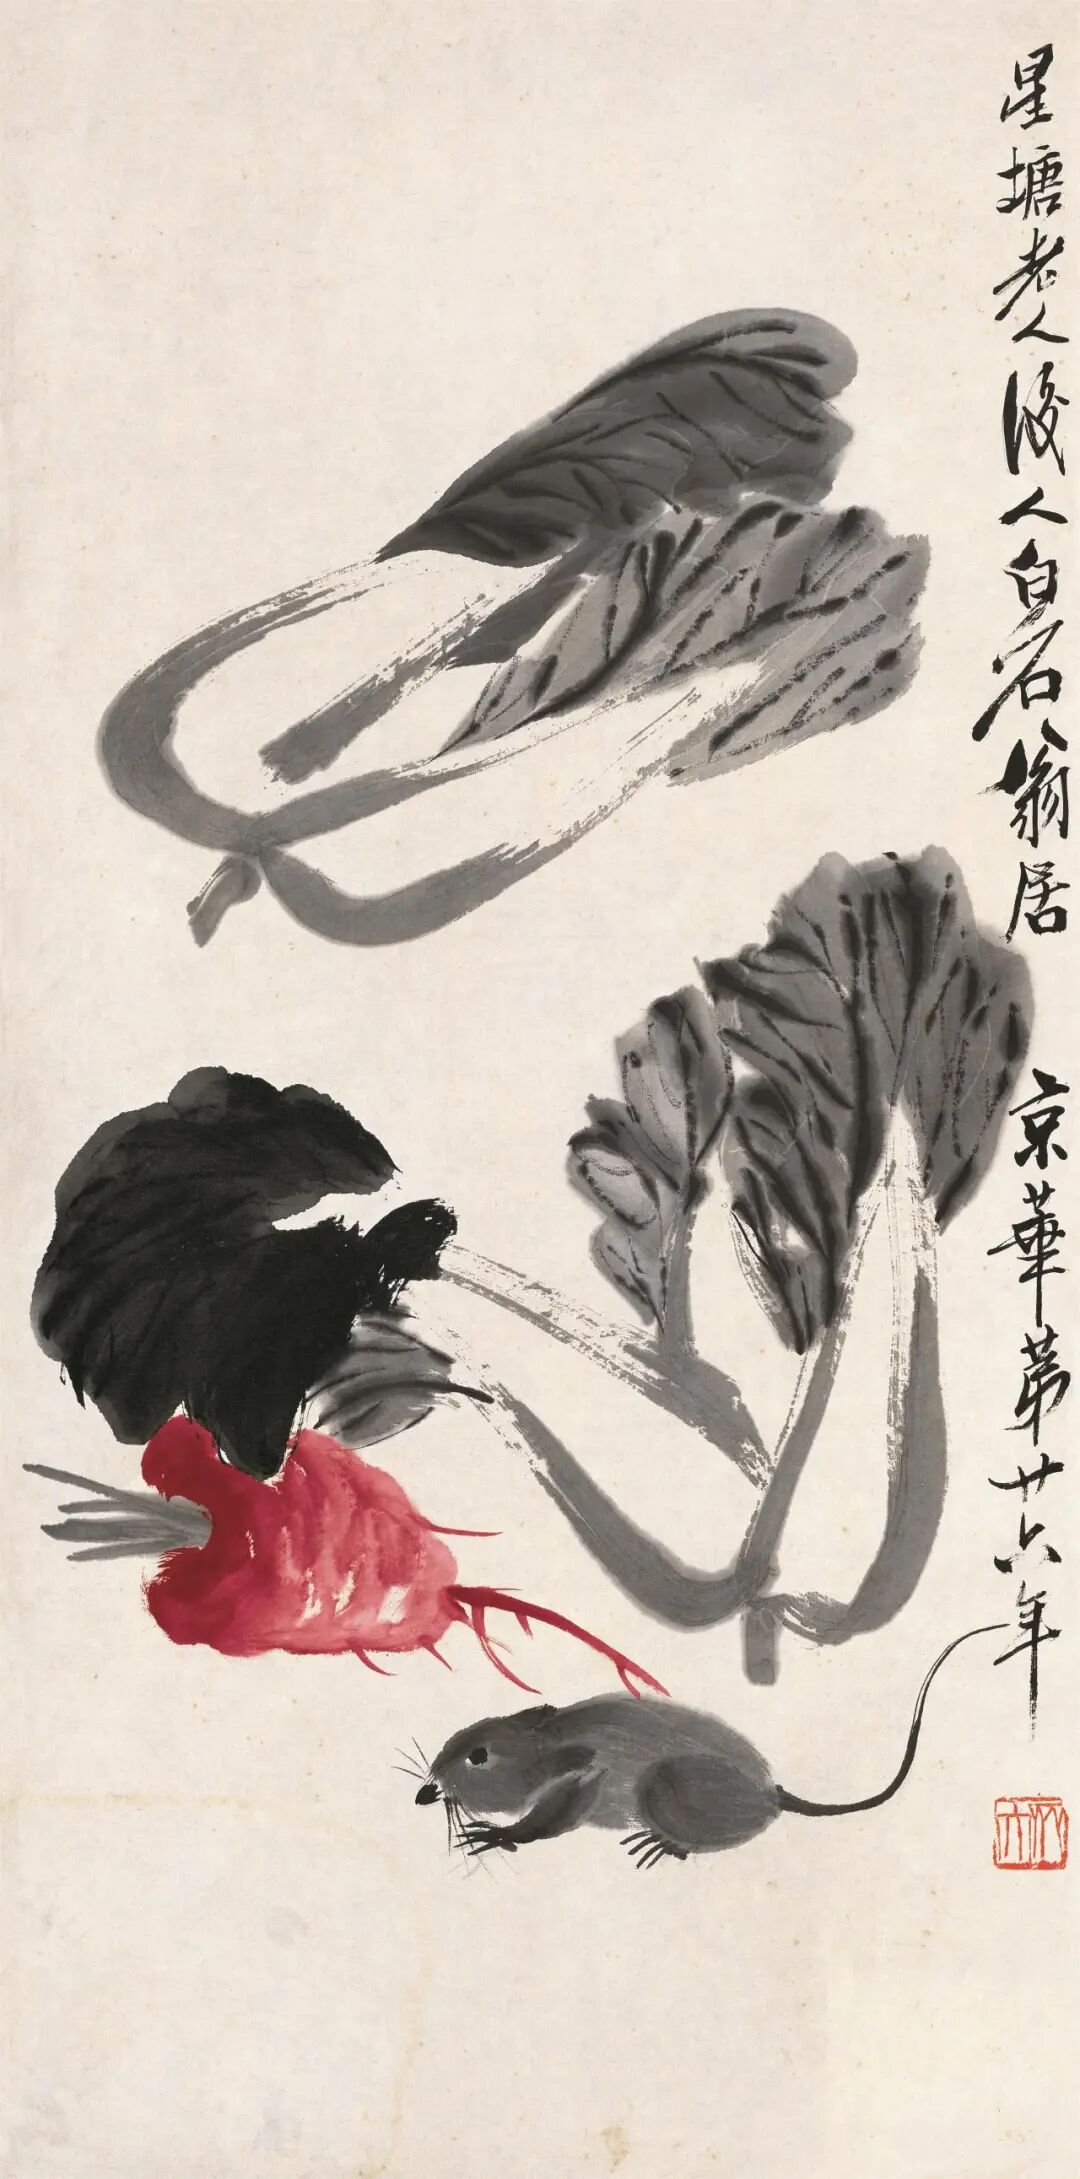 星塘老人後人白石翁居京華第廿六年
木人